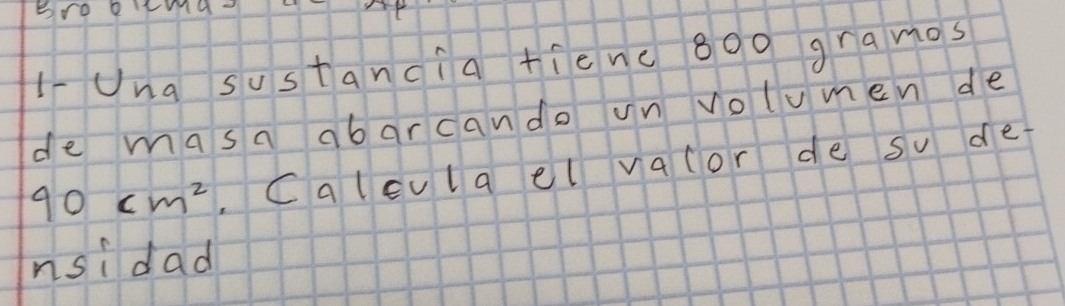 1- Una sustancia tiene 800 gramos
de masa abarcando un volumen de
90 cm². Calcula el valor de su de-
nsidad